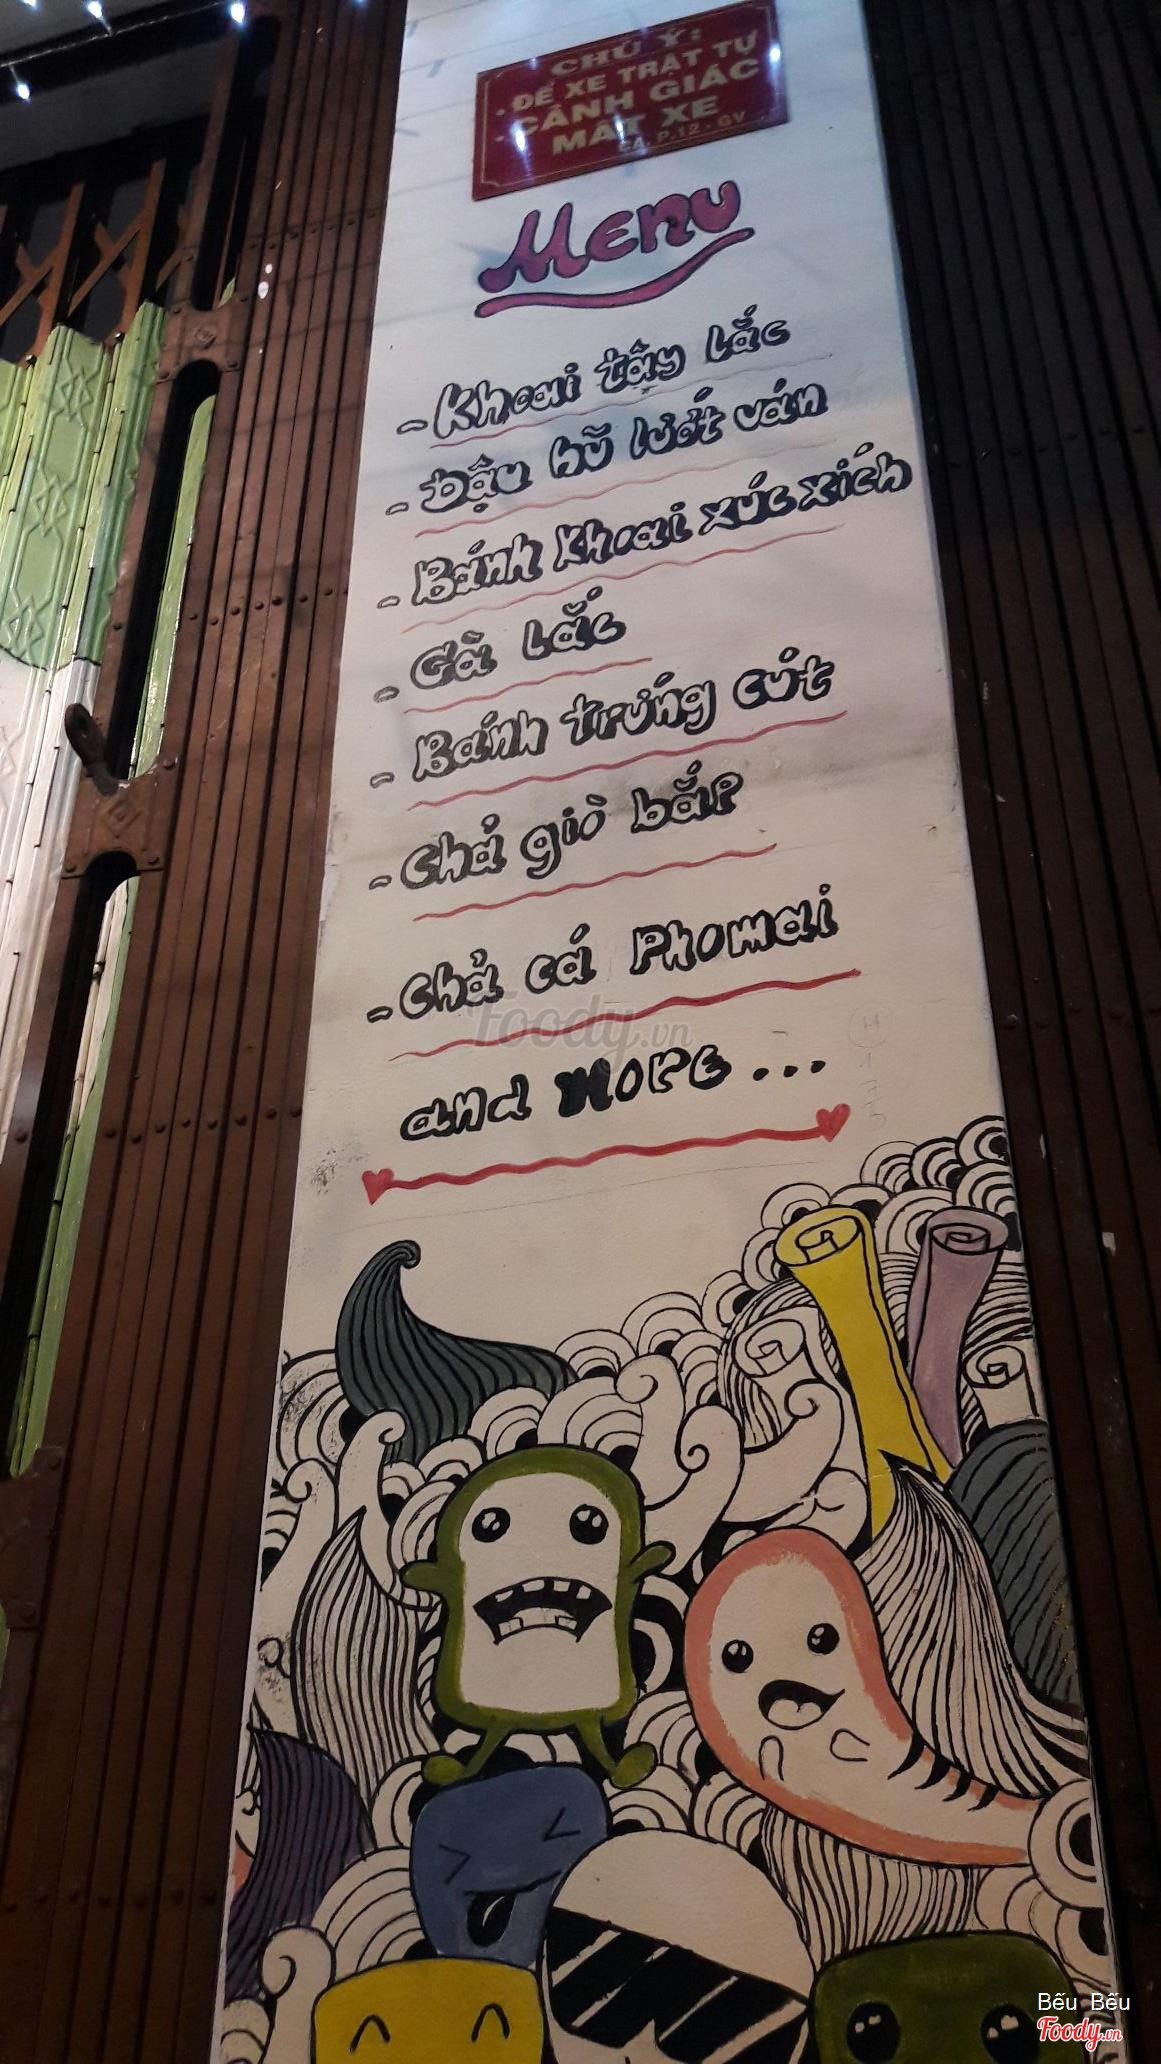 CHÚ Ý:
- ĐỂ XE TRẬT TỰ
- CẢNH GIÁC
MẤT XE
CA. P.12 - GV
Menu
- Khoai tây lắc
- Đậu hũ lướt ván
- Bánh khoai xúc xích
- Gà lắc
- Bánh trứng cút
- Chả giò bắp
- Chả cá Phomai
Foody.vn
and MORE ...
Bếu Bếu
Foody.vn